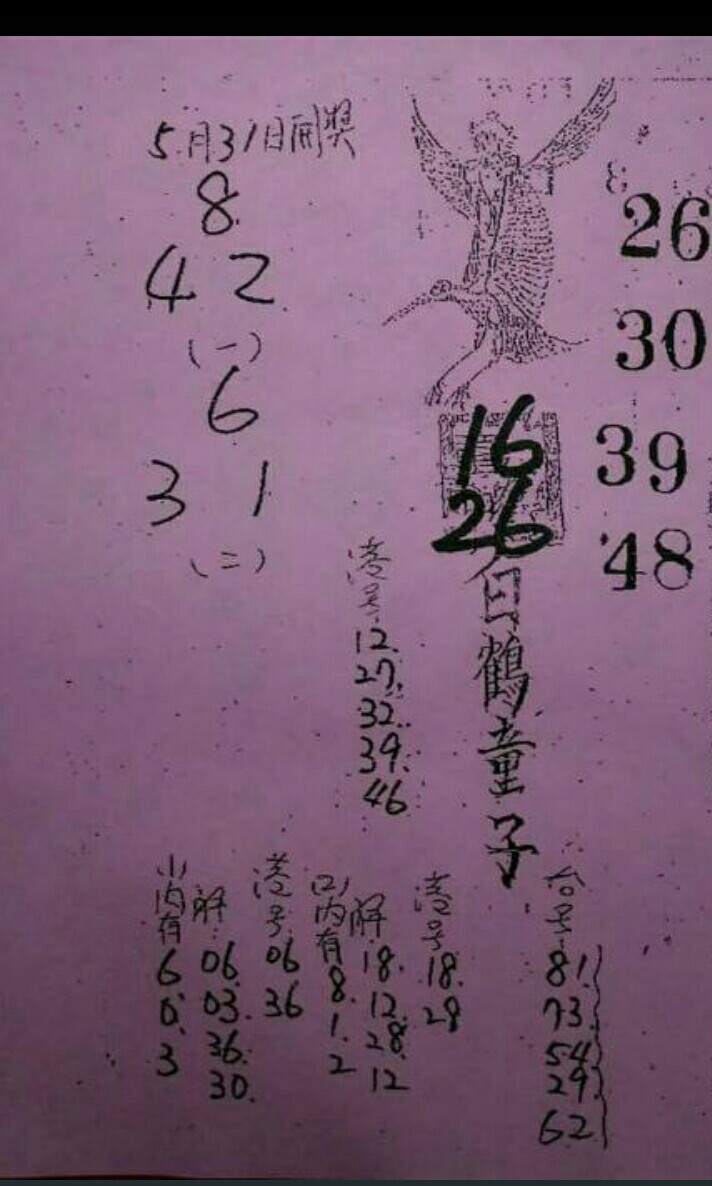 5月31日開奨
8
4 2
(一)
6
3 1
(二)
26
30
39
48
16
26
白鶴童子
港号
12.
27.
32.
39.
46
(1)内有
6
0.
3
解:
06.
03.
36.
30.
港号
06
36
(2)内有
8.
1.
2
解:
18.
12.
28.
12
港号
18.
28
台号
81.
73.
54
29.
62